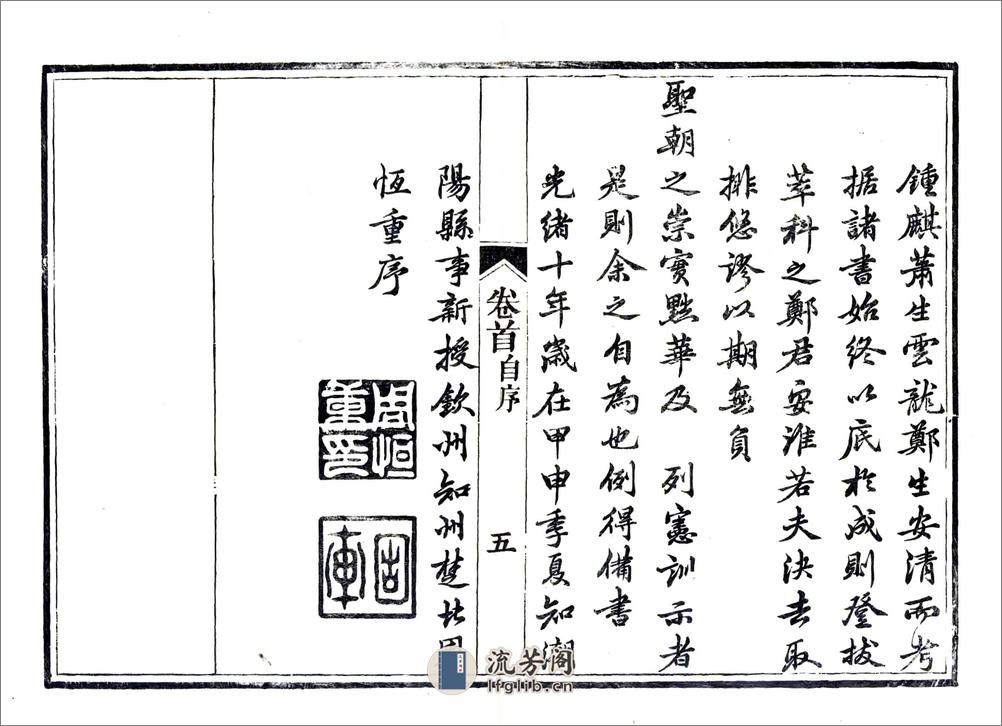 鍾麒蕭生雲龍鄭生安清而考
据諸書始終以底於成則登拔
萃科之鄭君安淮若夫決去取
排悠謬以期無負
聖朝之崇實黜華及 列憲訓示者
是則余之自為也例得備書
光緒十年歲在甲申季夏知潮
陽縣事新授欽州知州楚北周
恆重序
周恒
重印
卷首自序
五
流芳阁
lfglib.cn